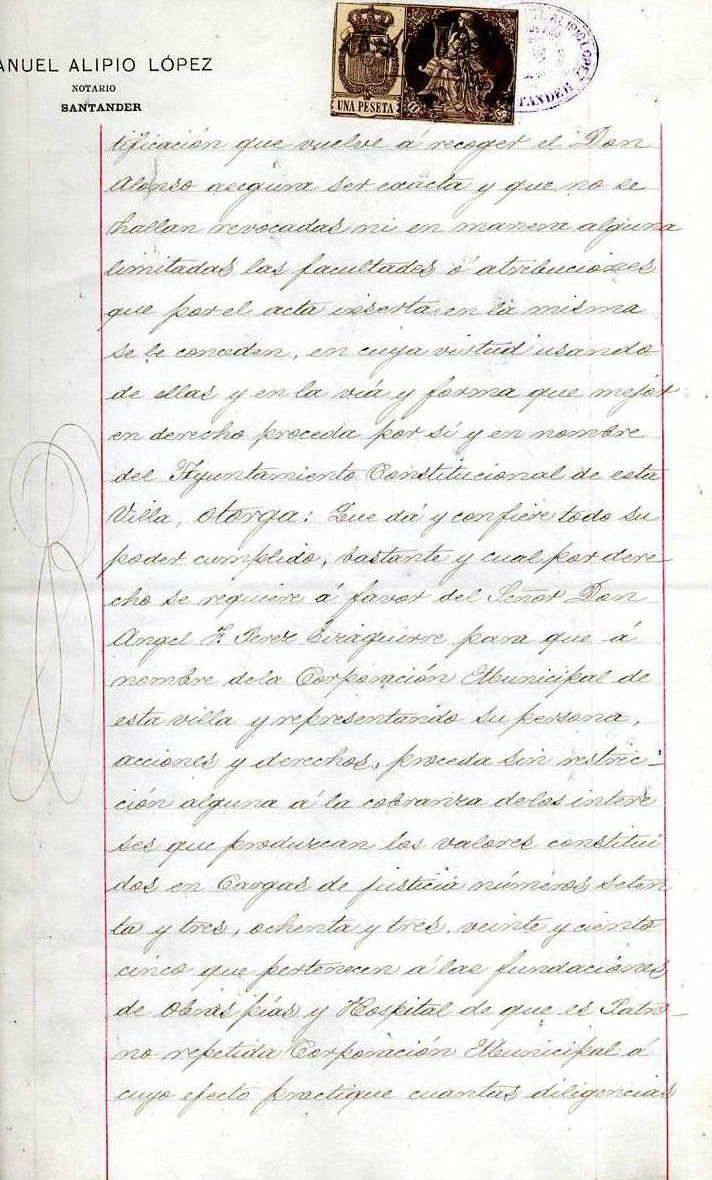 ANUEL ALIPIO LÓPEZ
NOTARIO
SANTANDER
UNA PESETA
ALIPIO LÓPEZ
SANTANDER
tificación que vuelve á recoger el Don
Alonso asegura ser exacta y que no se
hallan revocadas ni en manera alguna
limitadas las facultades ó atribuciones
que por el acta inserta en la misma
se le conceden, en cuya virtud usando
de ellas y en la viá y forma que mejor
en derecho proceda por sí y en nombre
del Ayuntamiento Constitucional de esta
Villa, otorga: Que dá y confiere todo su
poder cumplido, bastante y cual por dere-
cho se requiere á favor del Señor Don
Angel F. Perez Eizaguirre para que á
nombre dela Corporación Municipal de
esta villa y representando su persona,
acciones y derechos, proceda sin restric-
ción alguna á la cobranza delos intere
ses que produzcan los valores constitui
dos en Cargas de justicia números seten
ta y tres, ochenta y tres, veinte y ciento
cinco que pertenecen á las fundaciones
de Obras pías y Hospital de que es Patro-
no repetida Corporación Municipal á
cuyo efecto practique cuantas diligencias